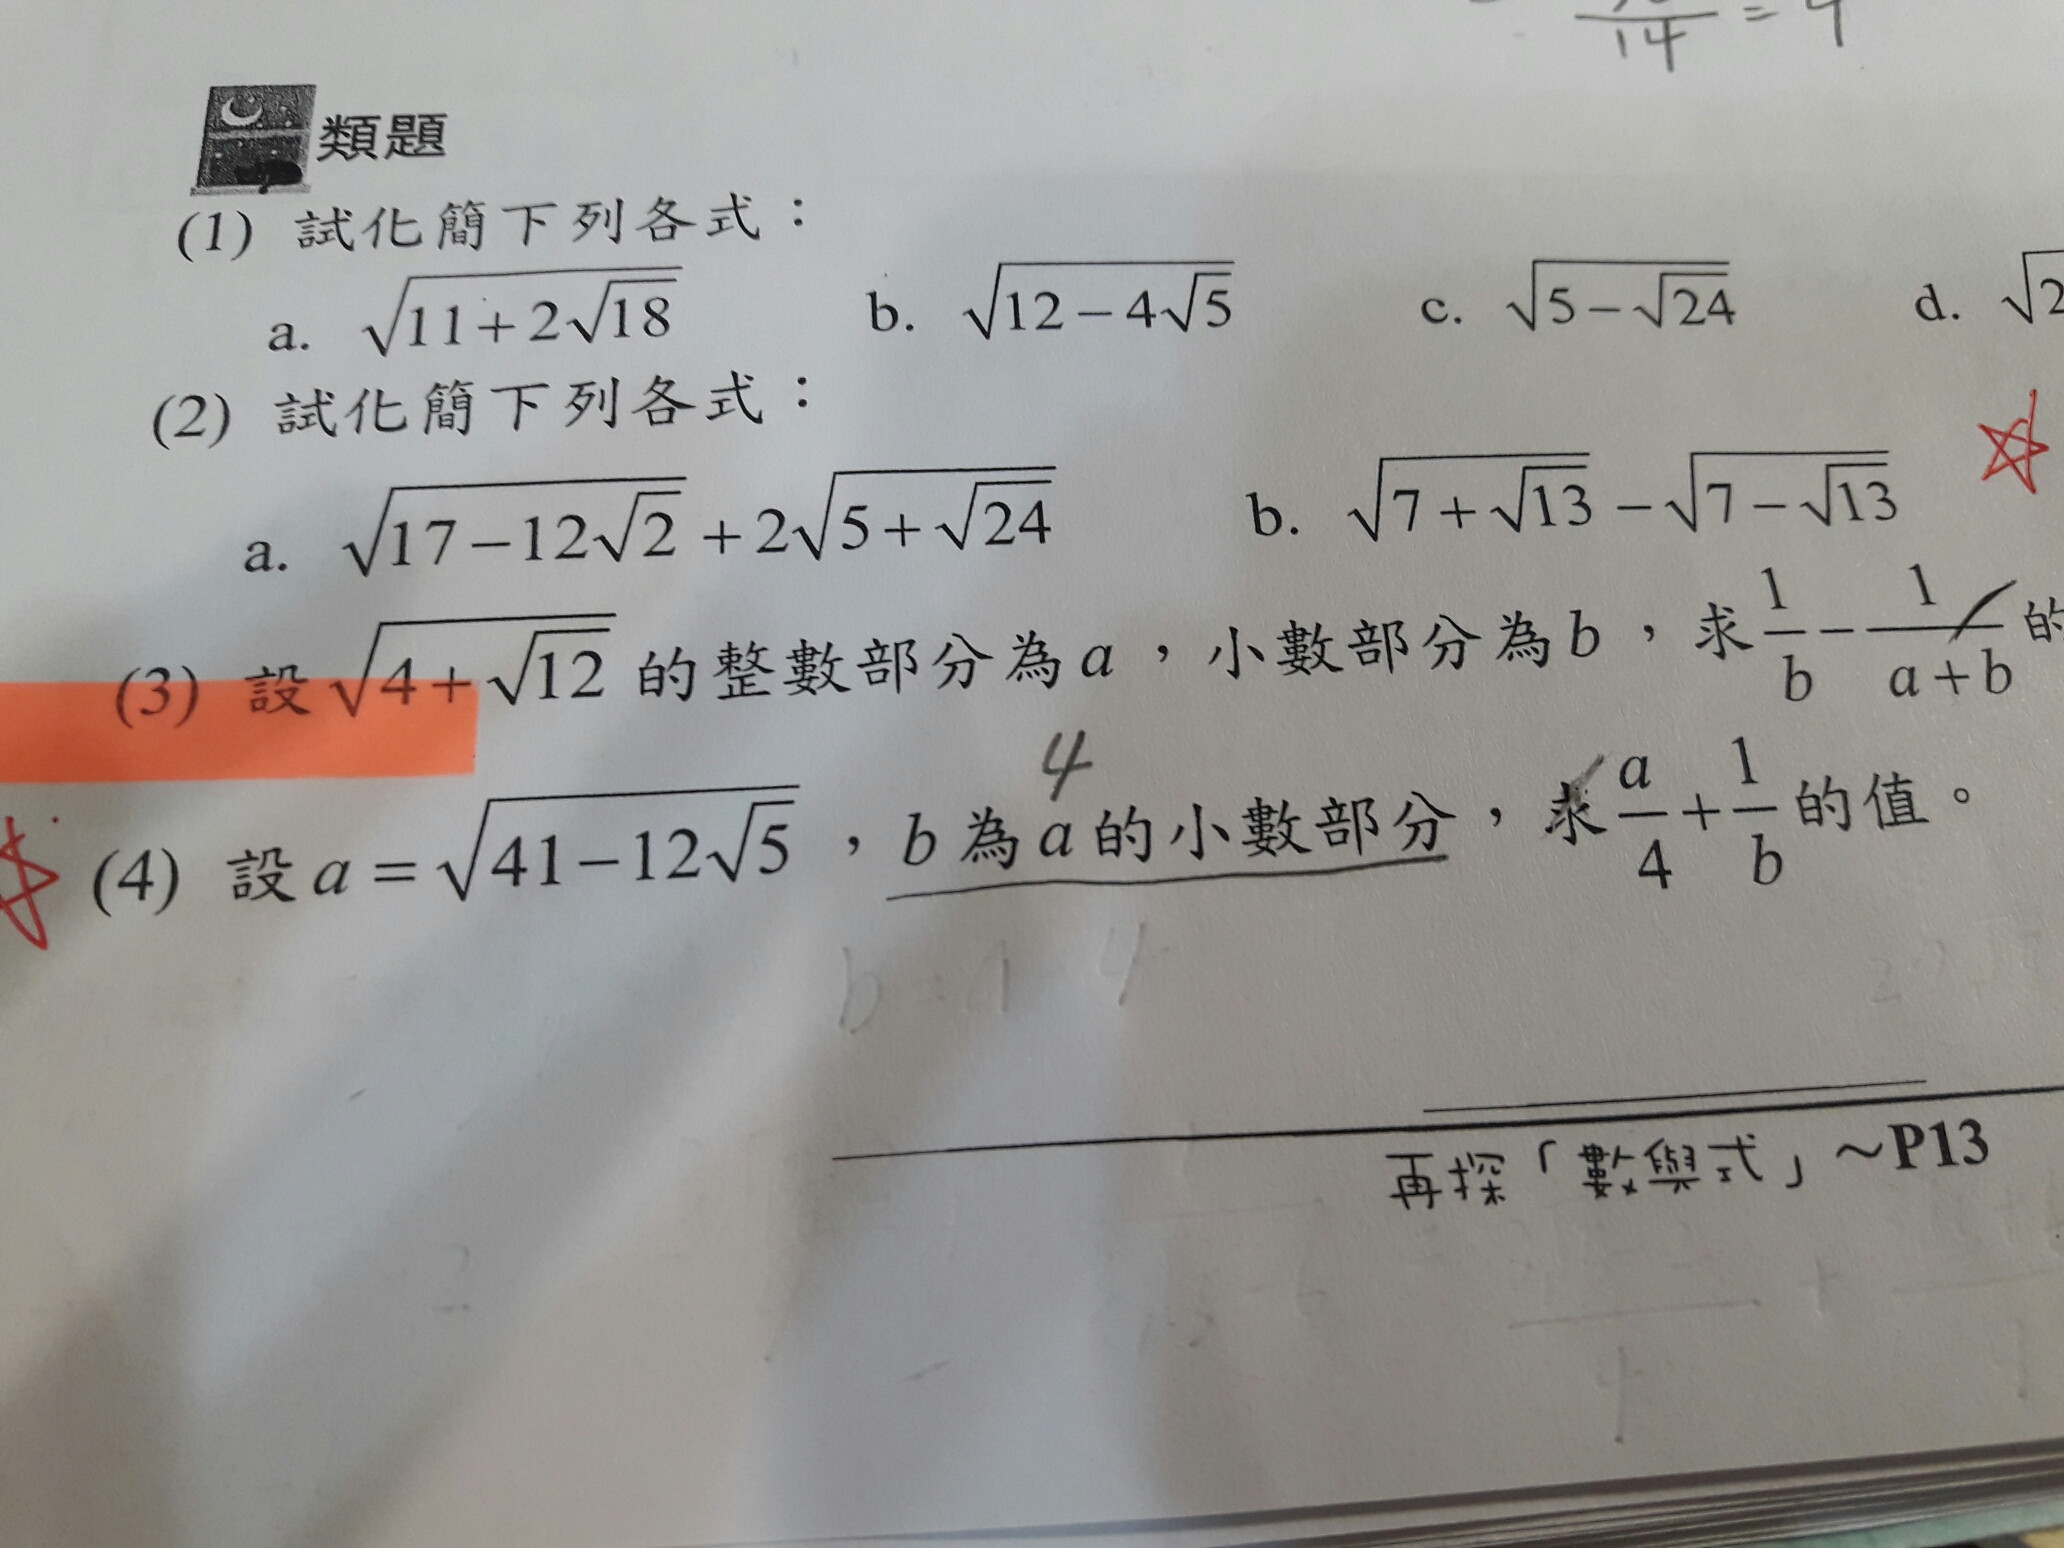 14 = 4
類題
(1) 試化簡下列各式：
a. √(11+2√18) b. √(12−4√5) c. √(5−√24) d. √2
(2) 試化簡下列各式：
a. √(17−12√2) + 2√(5+√24) b. √(7+√13) − √(7−√13)
(3) 設 √(4+√12) 的整數部分為 a，小數部分為 b，求 1/b − 1/(a+b) 的
4
(4) 設 a = √(41−12√5)，b 為 a 的小數部分，求 a/4 + 1/b 的值。
再探「數與式」~P13